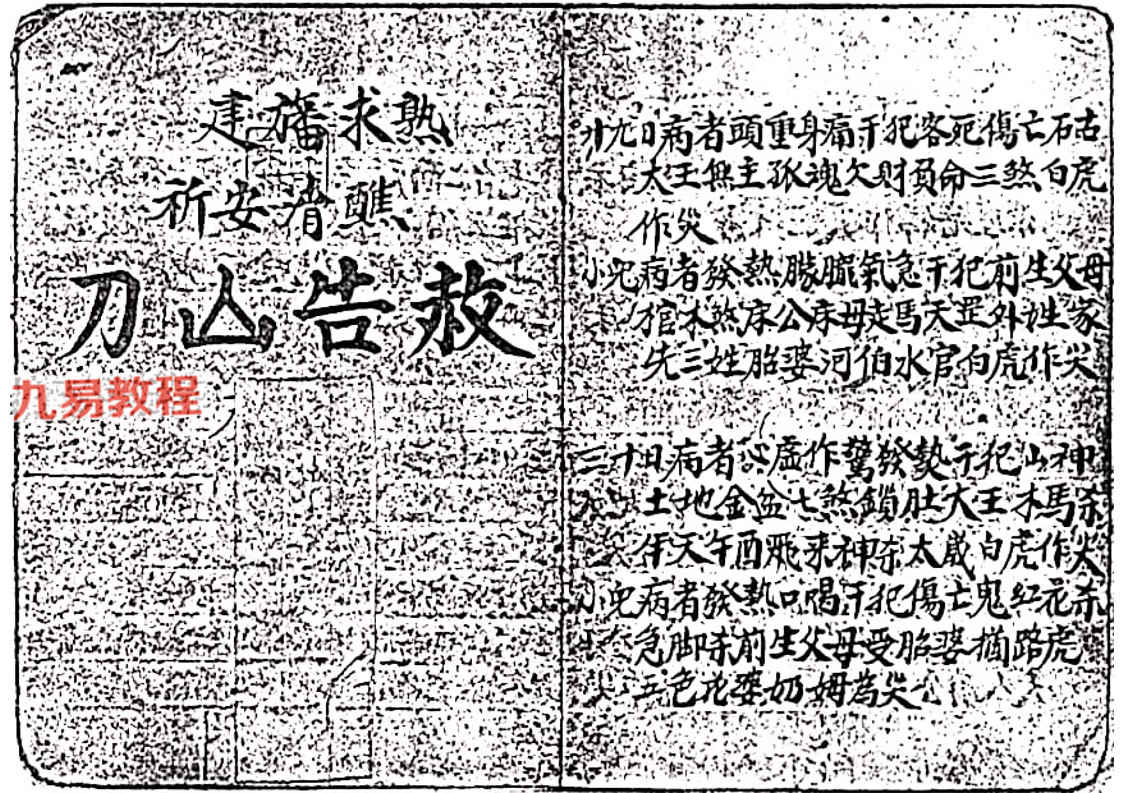 建旛求熟
祈安清醮
刀山告赦
九易教程
廿九日病者頭重身痛干犯客死傷亡石古
大王無主孤魂欠財負命三煞白虎
作災
小兒病者發熱朦朧氣急干犯前生父母
棺木煞床公床母走馬天罡外姓家
先三姓胎婆河伯水官白虎作災
三十日病者心虛作驚發熱干犯山神
土地金盆七煞鎖肚大王木馬杀
天午酉飛来神杀太歲白虎作災
小兒病者發熱口喝干犯傷亡鬼紅花杀
急脚杀前生父母受胎婆路虎
五色花婆奶姆為災